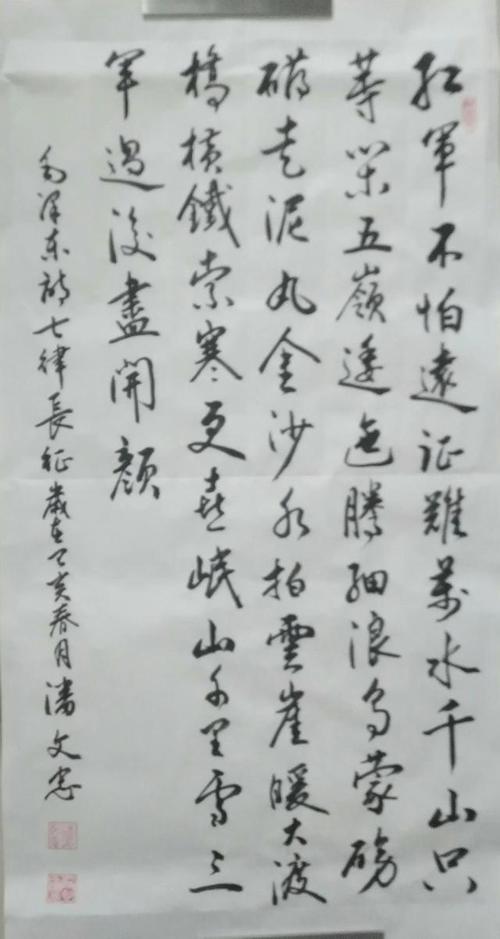 紅軍不怕遠征難萬水千山只
等閑五嶺逶迤騰細浪烏蒙磅
礴走泥丸金沙水拍雲崖暖大渡
橋橫鐵索寒更喜岷山千里雪三
軍過後盡開顏
毛澤東詩七律長征歲在亥春月潘文忠